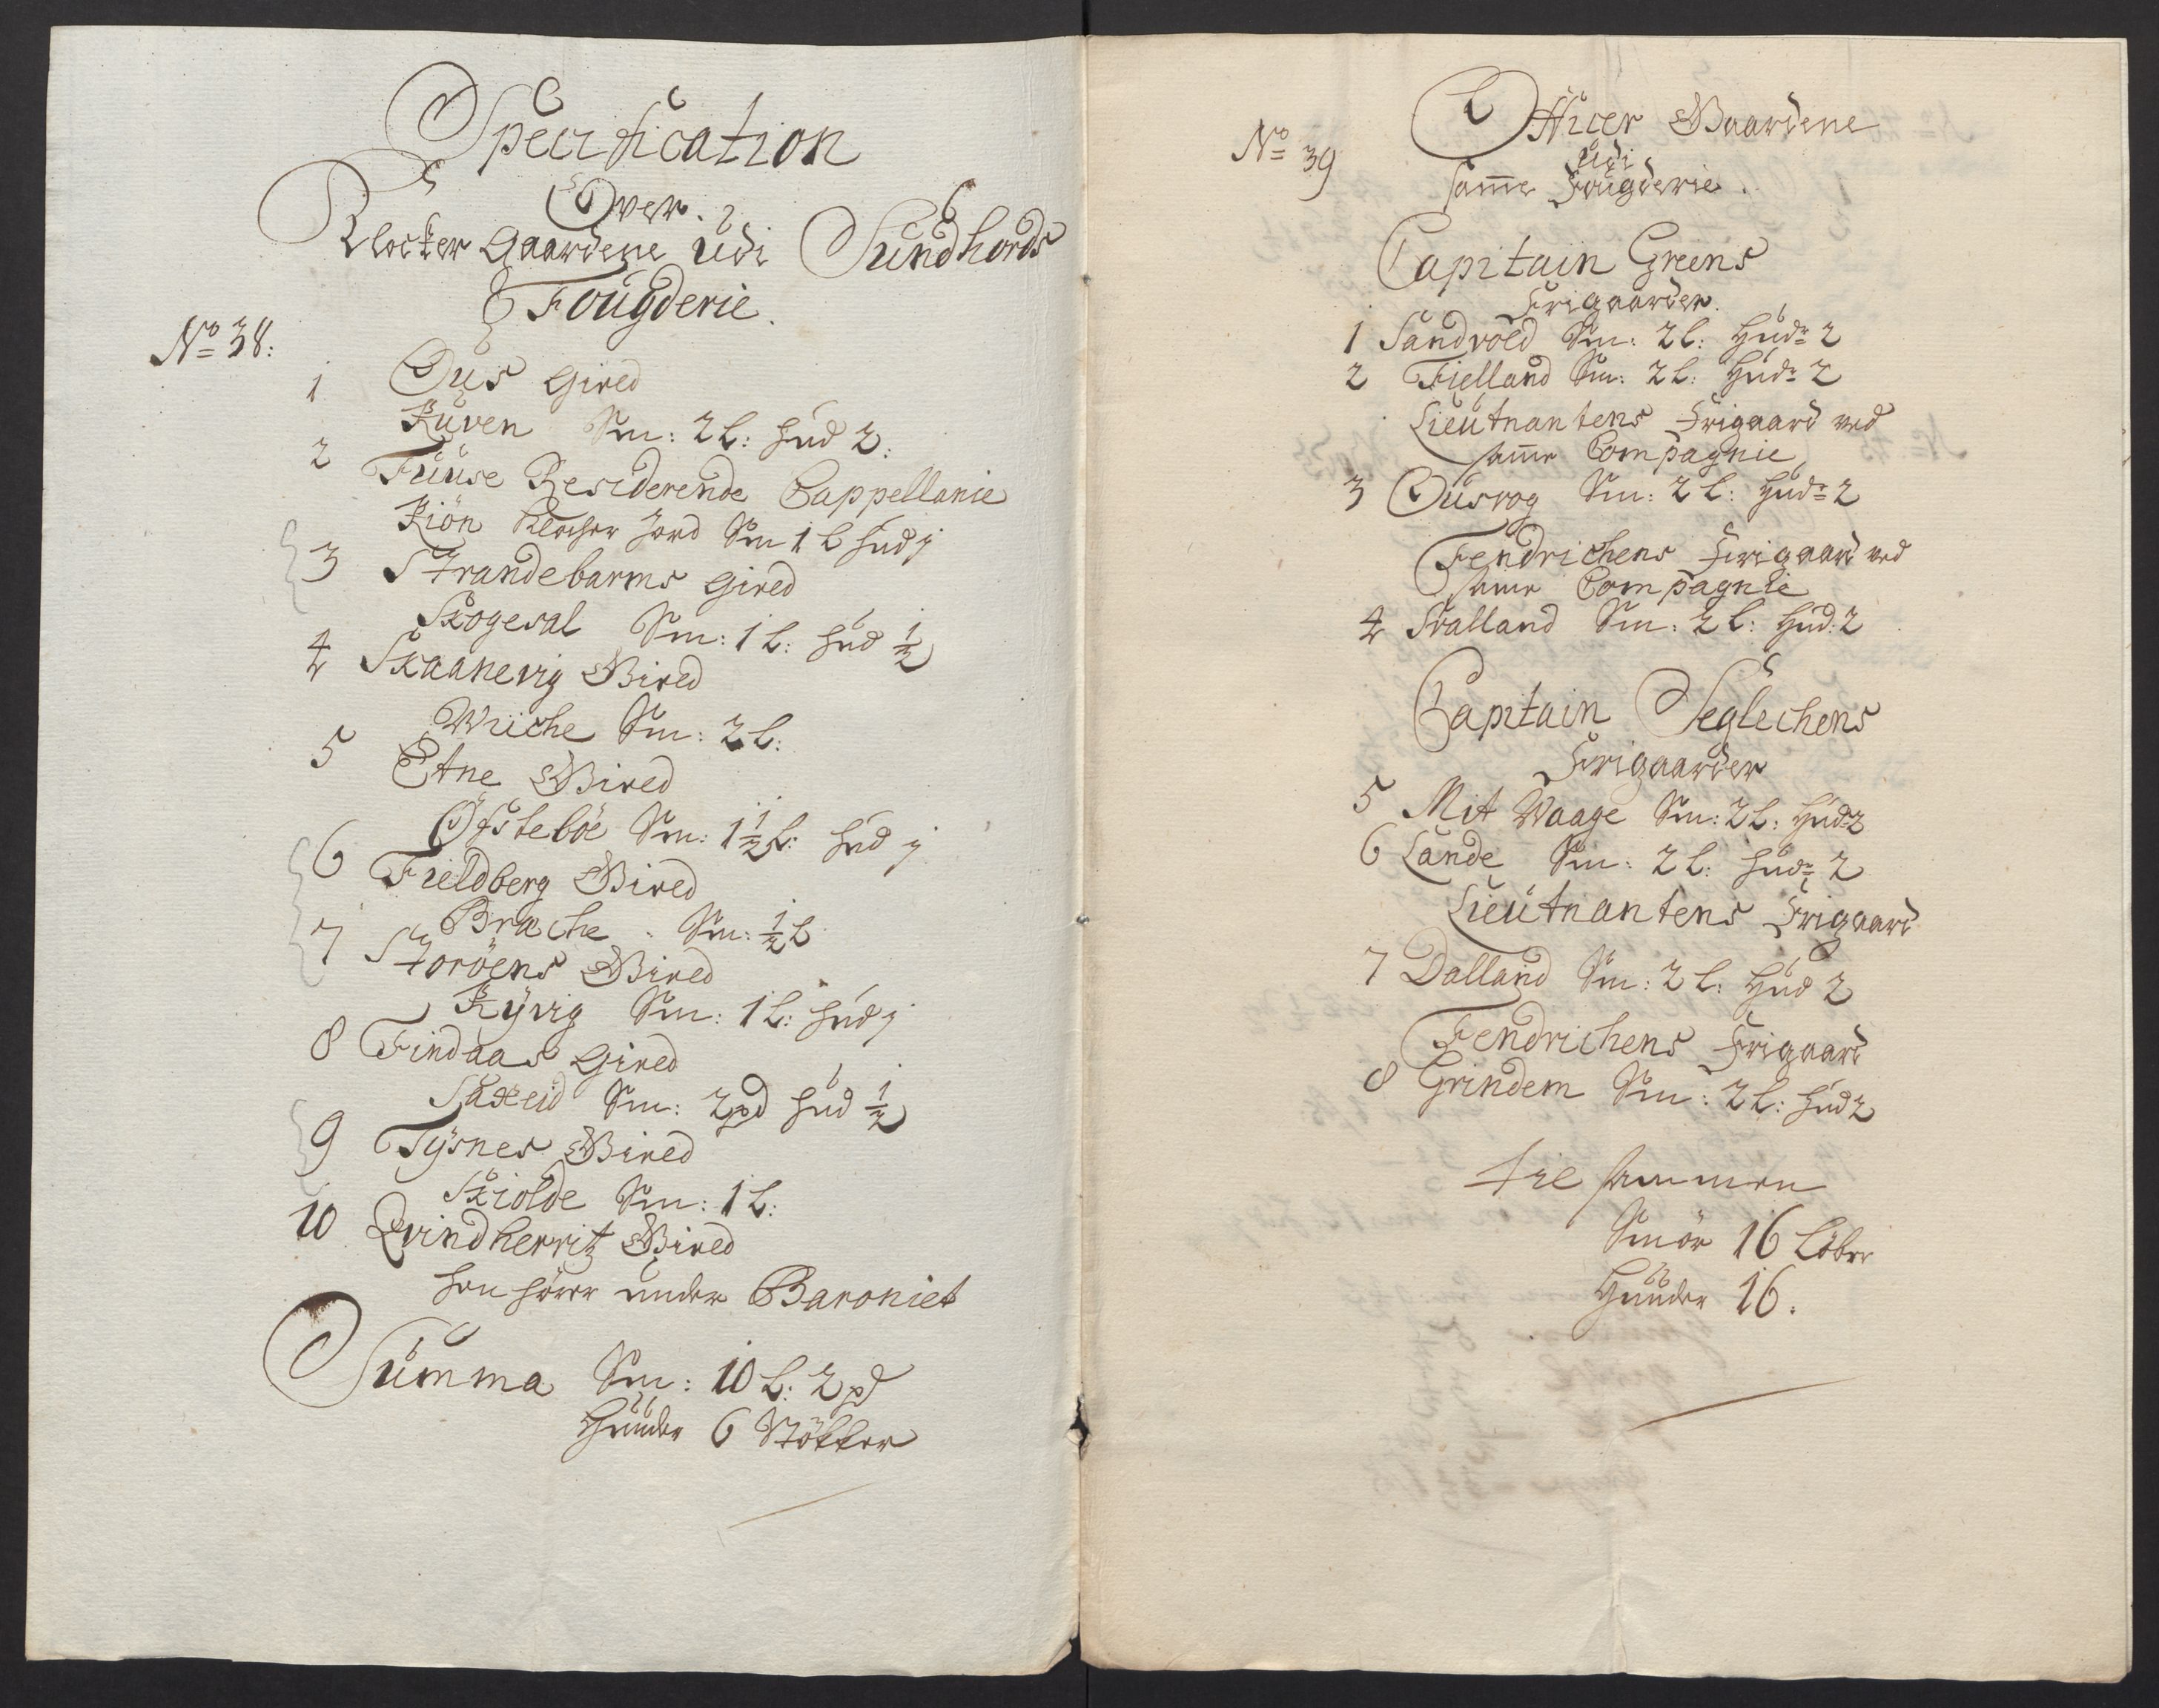 Specification
Over
Klocker Gaardene udi Sundhords
Fougderie.
No 38:
1 Ous Gield
Kuven Sm: 2 L: Hud 2:
2 Fuuse Residerende Cappellanie
Kiön Klocher Jord Sm 1 L Hud j
3 Strandebarms Gield
Skogesal Sm: 1 L: Hud 1/2
4 Skaanevig Gield
Wiiche Sm: 2 L:
5 Etne Gield
Øfstebøe Sm: 1 1/2 L: Hud j
6 Fieldberg Gield
Bræche Sm: 1/2 L
7 Storöens Gield
Kÿvig Sm: 1 L: Hud j
8 Findaas Gield
Saxeid Sm: 2 pd Hud 1/2
9 Tÿsnes Gield
Skiolde Sm: 1 L:
10 Qvindherritz Gield
hen hører under Baroniet
Summa Sm: 10 L: 2 pd
Huuder 6 Støkker
No 39
Officer Gaardene
udi
samme Fougderie.
Capitain Greens
Frigaarder.
1 Sandvold Sm: 2 L: Hudr 2
2 Fielland Sm: 2 L: Hudr 2
Lieutnantens Frigaard ved
samme Compagnie
3 Ousvog Sm: 2 L: Hudr 2
Fendrichens Frigaard ved
samme Compagnie
4 Svalland Sm: 2 L: Hud: 2
Capitain Seglechens
Frigaarder
5 Mit Waage Sm: 2 L: Hudr 2
6 Lande Sm: 2 L: Hudr 2
Lieutnantens Frigaard
7 Dalland Sm: 2 L: Hud 2
Fendrichens Frigaard
8 Grindem Sm: 2 L: Hud 2
tilsammen
Smör 16 Löber
Huuder 16.